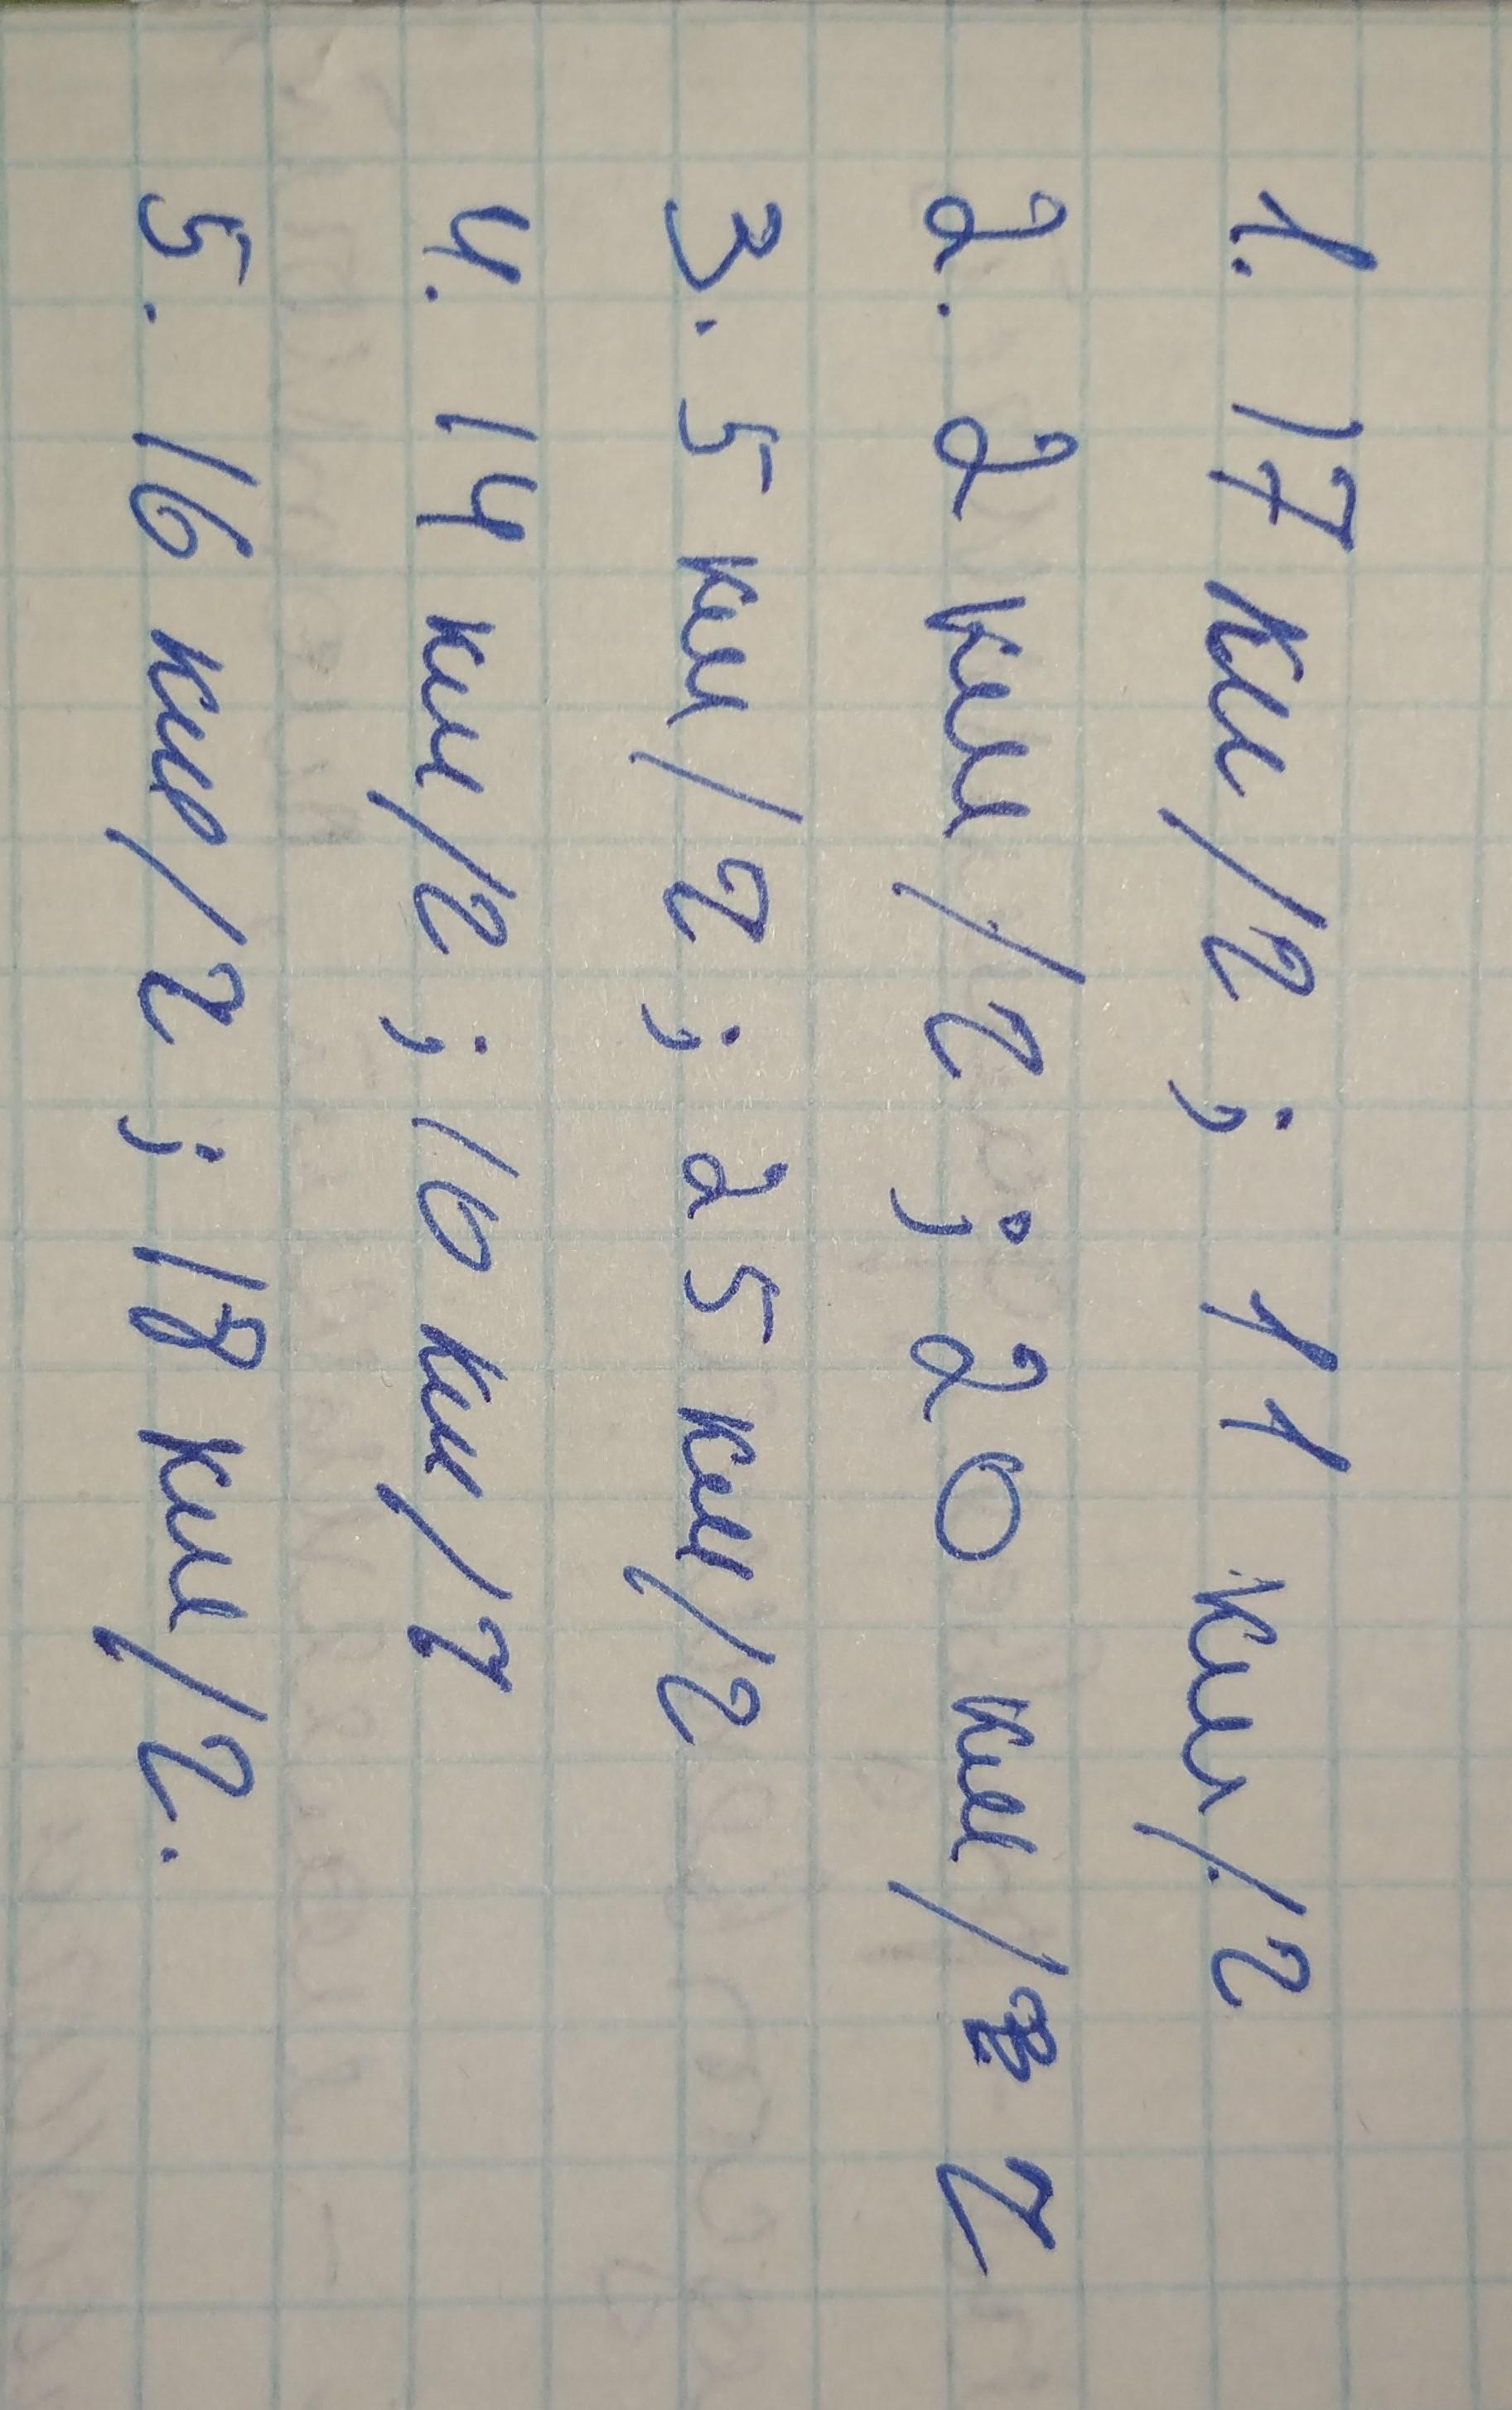 1. 17 км/ч; 11 км/ч
2. 2 км/ч; 20 км/ч
3. 5 км/ч; 25 км/ч
4. 14 км/ч; 10 км/ч
5. 16 км/ч; 18 км/ч.